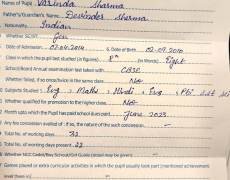 Name of Pupil Varinda Sharma
Father's/Guardian's Name Devinder Sharma
Nationality Indian
Whether SC/ST Gen
Date of Admission 02.04.2014 6. Date of Birth 02-09-2010
Class in which the pupil last studied (in figures) 8th (in Words) Eight
School/Board Annual examination last taken with CBSE
Whether failed, if so once/twice in the same class No
Subjects Studied : Eng, Maths, Hindi
Whether qualified for promotion to the higher class No
Month upto which the Pupil has paid school dues June 2023
Any fee concession availed of: if so, the nature of the such concession -
Total No. of working days 32
Total No. of working days present 22
Whether NCC Cadet/Boy Scout/Girl Guide
Games played or extra curricular activities in which the pupil usually took part (mentioned achievement
level therein)